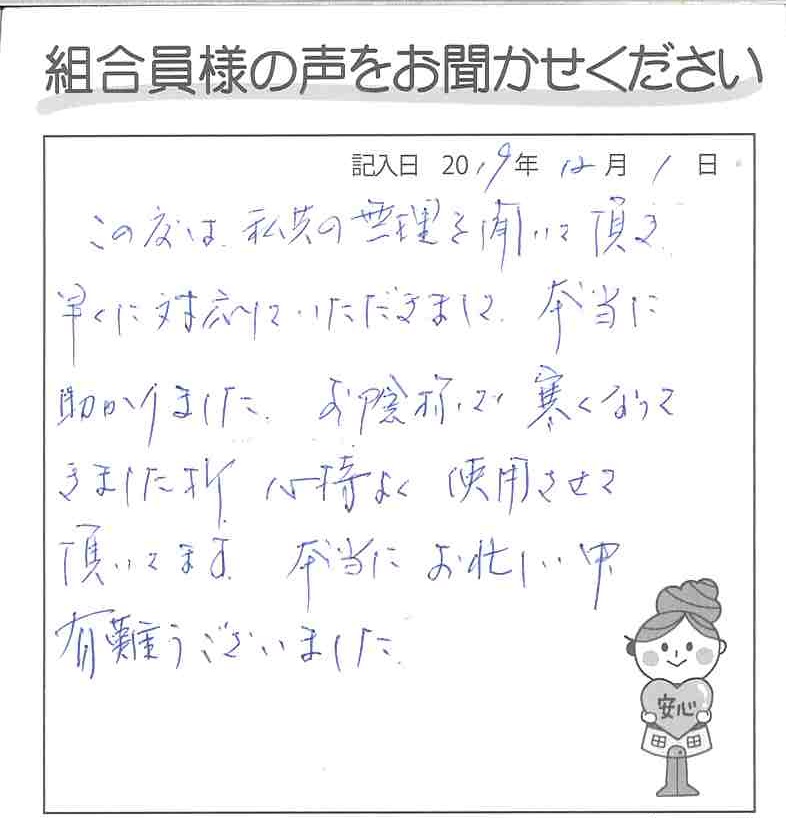 組合員様の声をお聞かせください
記入日 2019年 12月 1日
この度は、私共の無理を聞いて頂き
早くに対応していただきまして、本当に
助かりました。お陰様で寒くなって
きました折 心持よく使用させて
頂いてます。本当にお忙しい中
有難うございました。
安心